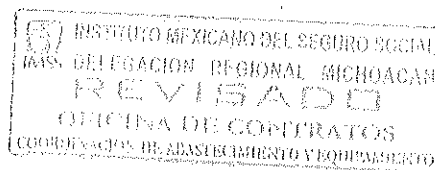 INSTITUTO MEXICANO DEL SEGURO SOCIAL
IMSS DELEGACION REGIONAL MICHOACAN
REVISADO
OFICINA DE CONTRATOS
COORDINACION DE ABASTECIMIENTO Y EQUIPAMIENTO